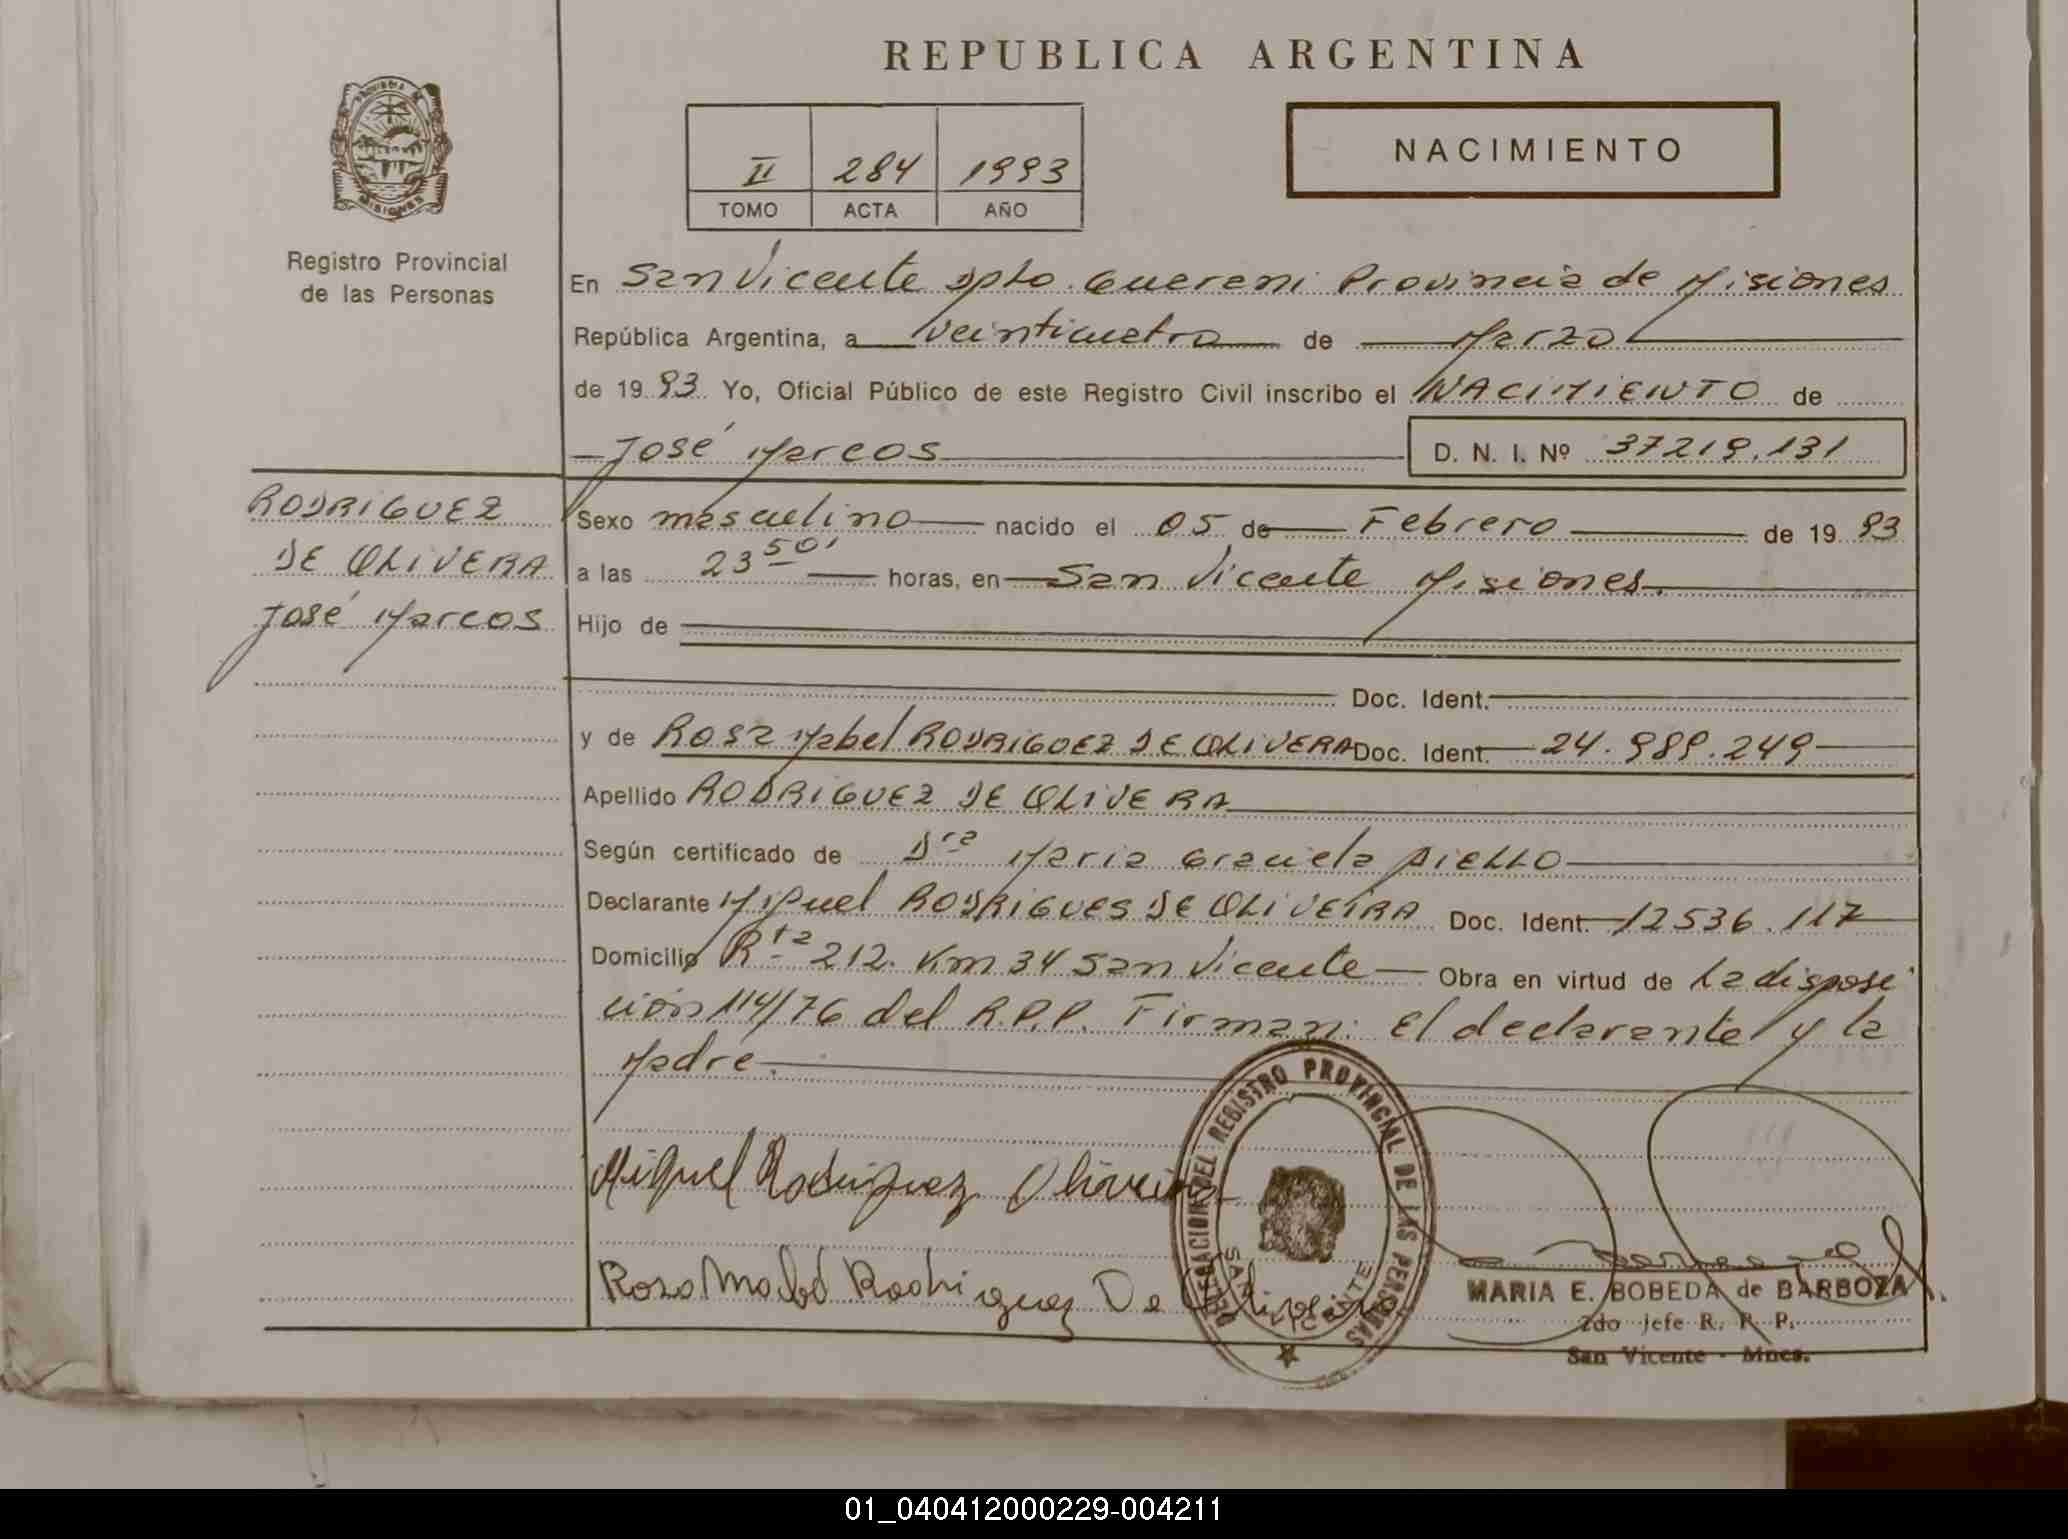 REPUBLICA ARGENTINA
II 284 1993
TOMO ACTA AÑO
NACIMIENTO
MISIONES
Registro Provincial
de las Personas
En San Vicente Dpto. Guarani Provincia de Misiones
República Argentina, a veinticuatro de Marzo
de 1993 Yo, Oficial Público de este Registro Civil inscribo el NACIMIENTO de
José Marcos D. N. I. Nº 37219.131
RODRIGUEZ
DE OLIVERA
José Marcos
Sexo masculino nacido el 05 de Febrero de 1993
a las 23 50' horas, en San Vicente Misiones.
Hijo de
Doc. Ident.
y de Rosa Mabel RODRIGUEZ DE OLIVERA Doc. Ident. 24.989.249
Apellido RODRIGUEZ DE OLIVERA
Según certificado de Dra Maria Graciela AIELLO
Declarante Miguel RODRIGUES DE OLIVEIRA Doc. Ident. 12536.117
Domicilio Rta 212. Km 34 San Vicente Obra en virtud de La disposi
ción 114/76 del R.P.P. Firman: El declarante y la
Madre.
Miguel Rodriguez Oliveira
Rosa Mabel Rodriguez De Oliveira
DELEGACION DEL REGISTRO PROVINCIAL DE LAS PERSONAS
SAN VICENTE
MARIA E. BOBEDA de BARBOZA
2do Jefe R. P. P.
San Vicente - Mnes.
01_040412000229-004211